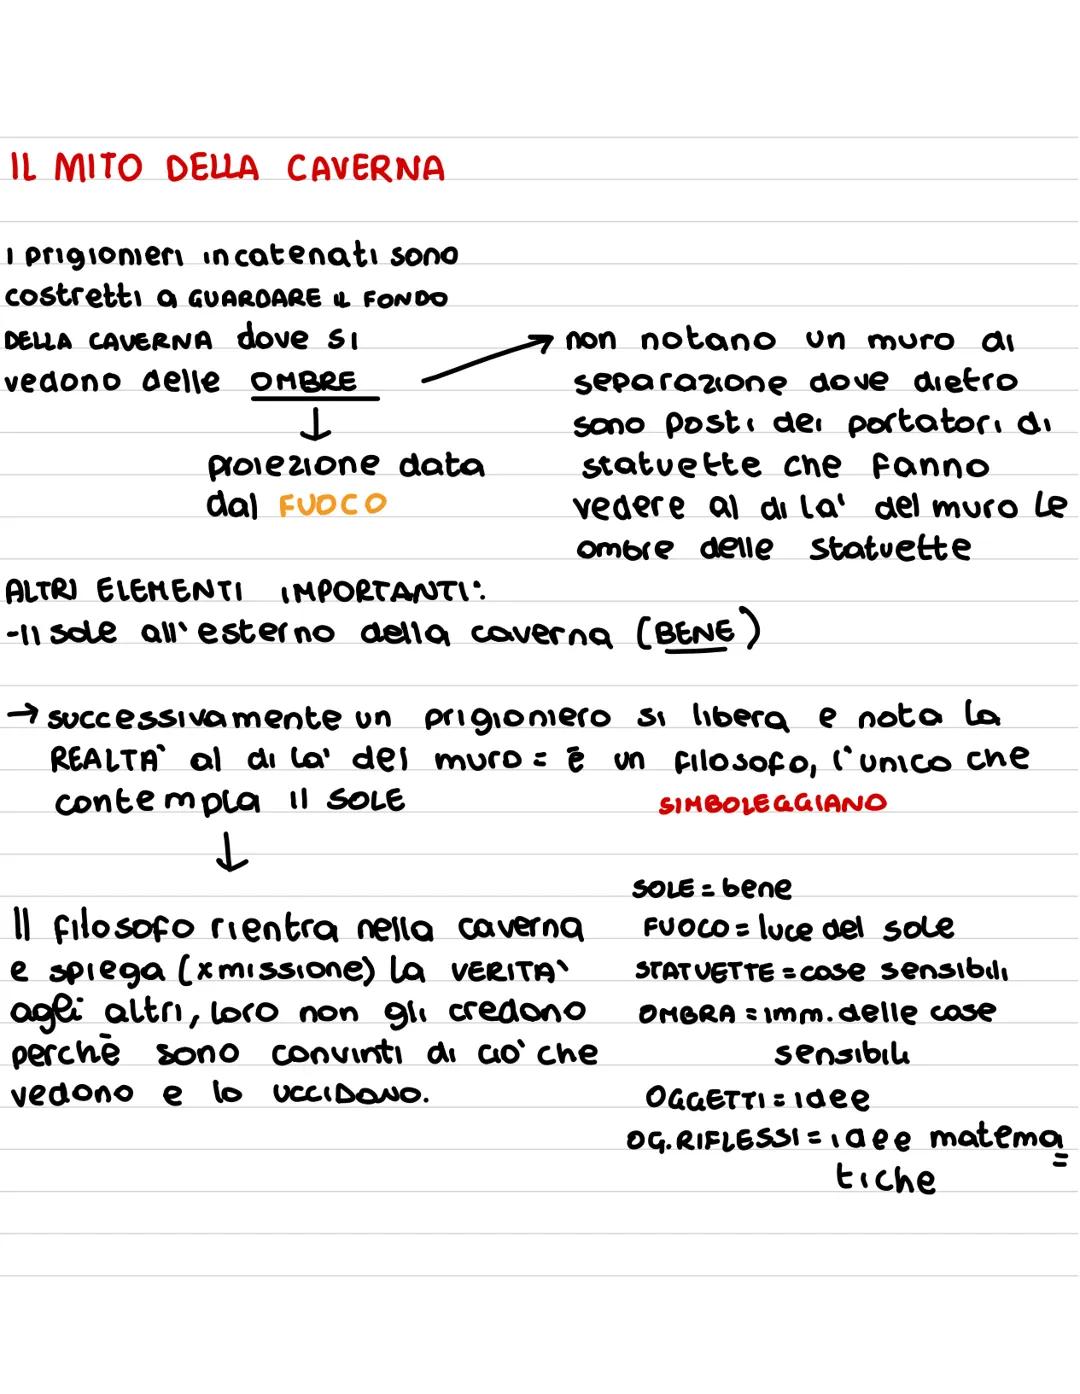 IL MITO DELLA CAVERNA
I prigionieri incatenati sono
costretti a GUARDARE IL FONDO
DELLA CAVERNA dove SI
vedono delle OMBRE
↓
proiezione data
dal FUOCO
→ non notano un muro di
separazione dove dietro
sono posti dei portatori di
statuette che fanno
vedere al di la' del muro le
ombre delle statuette
ALTRI ELEMENTI IMPORTANTI:
-Il sole all'esterno della caverna (BENE)
→ successivamente un prigioniero si libera e nota la
REALTA' al di la' del muro = è un filosofo, l'unico che
contempla il SOLE
↓
Il filosofo rientra nella caverna
e spiega (xmissione) la VERITA'
agli altri, loro non gli credono
perchè sono convinti di cio' che
vedono e lo UCCIDONO.
SIMBOLEGGIANO
SOLE = bene
FUOCO = luce del sole
STATUETTE = cose sensibili
OMBRA = imm. delle cose
sensibili
OGGETTI = idee
OG. RIFLESSI = idee matema=
tiche